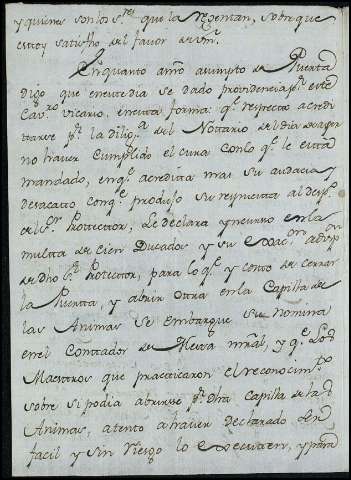 y quienes son los S.res que la Regentan, sobre que
estoy satisfho del favor de vm.
En quanto amro asumpto de Puerta
digo que en este dia se dado providencia p.r este
Cav.ro vicario, en esta forma: q.e respecto acredi
tarse p.r la dilig.a del Nottario del dia de ayer
no haver Cumplido el cura con lo q.e le esttá
mandado, en q.e acredita mas su audacia y
desacatto con q.e produjo su respuesta al
el S.or Protector, Se declara yncurso en la
multta de cien Ducados y su exac.on
de dho S.or Protector, para lo q.e y costo de cerrar
la Puertta, y abrir otra en la Capilla de
las Animas se embarque su nomina
en el Conttador de Messa
Maestros que practicaron el reconocim.to
sobre si podia abrirse p.r dha Capilla de las
Animas, atento a haver declarado ser
facil y sin riesgo lo executten, y para